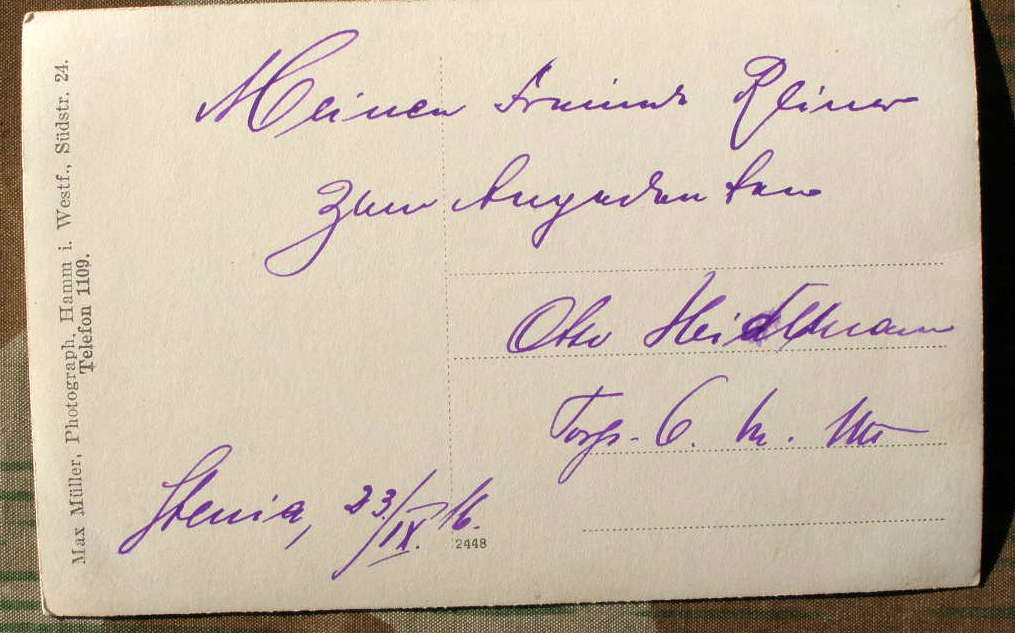 Max Müller, Photograph, Hamm i. Westf., Südstr. 24.
Telefon 1109.
Meinem Freunde
zum Angedenken
Otto Heidtmann
Torp.
Stenia, 23./IX. 16.
2448